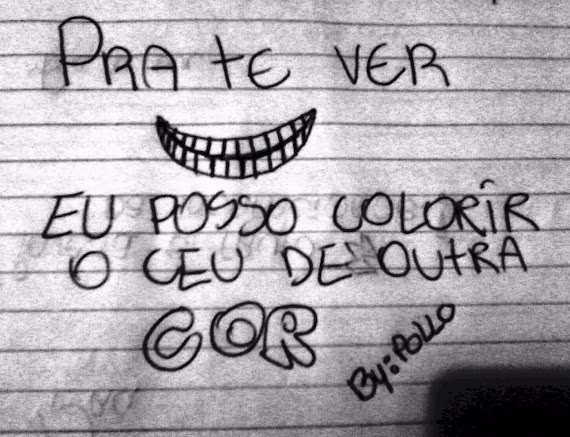 PRA TE VER
EU POSSO COLORIR
O CEU DE OUTRA
COR
By: POLLO